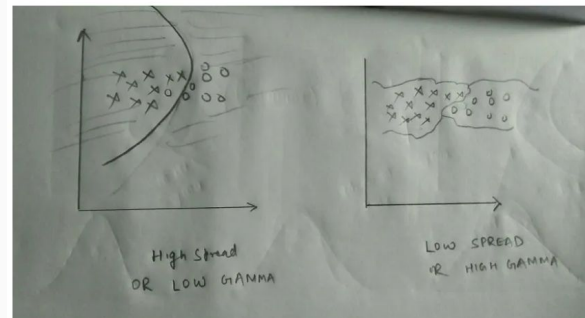 High Spread
OR LOW GAMMA
LOW SPREAD
OR HIGH GAMMA